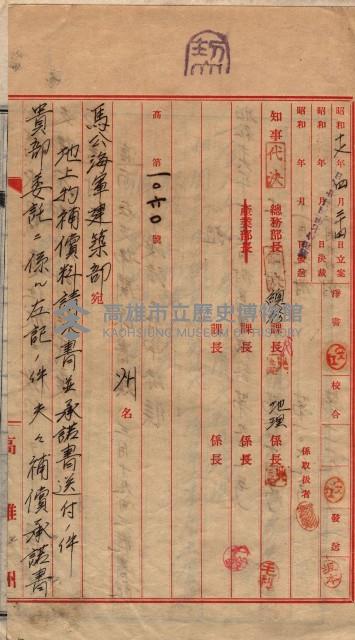 昭和十六年四月二十四日立案 淨書 校合 發送
昭和 年 月 日決裁
昭和 年 月 日發送 係取扱者
知事 代決 總務部長 總務課長 地理係長
產業部長 課長 係長
課長 係長
高第一〇六〇號
州名
馬公海軍建築部 宛
地上物補償料請書並承諾書送付ノ件
貴部委託ニ係ル左記ノ件夫々補償承諾書
高雄州
高雄市立歷史博物館
KAOHSIUNG MUSEUM OF HISTORY